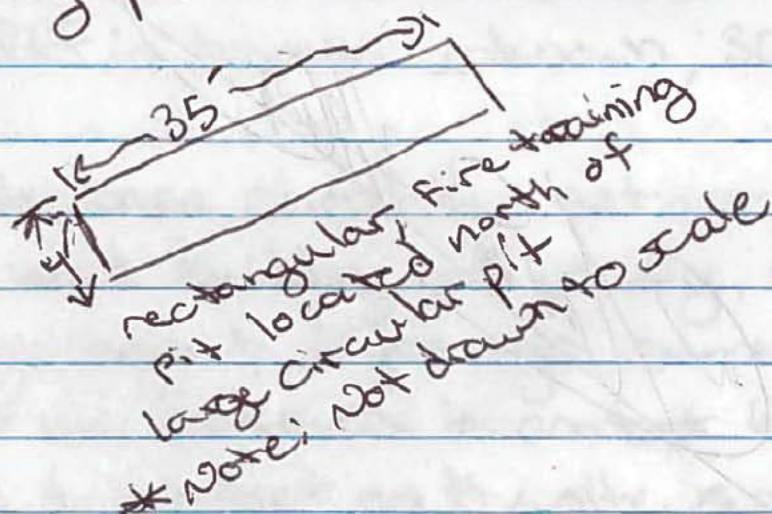 35'
4'
rectangular, fire training
pit located north of
large circular pit
* Note: Not drawn to scale